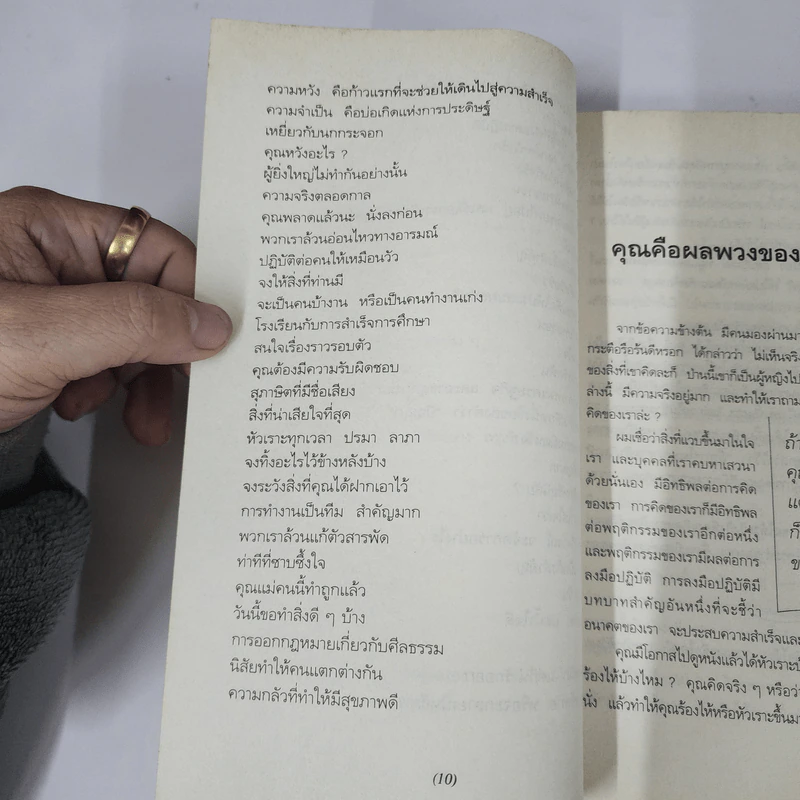 ความหวัง คือก้าวแรกที่จะช่วยให้เดินไปสู่ความสำเร็จ
ความจำเป็น คือบ่อเกิดแห่งการประดิษฐ์
เหยี่ยวกับนกกระจอก
คุณหวังอะไร ?
ผู้ยิ่งใหญ่ไม่ทำกันอย่างนั้น
ความจริงตลอดกาล
คุณพลาดแล้วนะ นั่งลงก่อน
พวกเราล้วนอ่อนไหวทางอารมณ์
ปฏิบัติต่อคนให้เหมือนวัว
จงให้สิ่งที่ท่านมี
จะเป็นคนบ้างาน หรือเป็นคนทำงานเก่ง
โรงเรียนกับการสำเร็จการศึกษา
สนใจเรื่องราวรอบตัว
คุณต้องมีความรับผิดชอบ
สุภาษิตที่มีชื่อเสียง
สิ่งที่น่าเสียใจที่สุด
หัวเราะทุกเวลา ปรมา ลาภา
จงทิ้งอะไรไว้ข้างหลังบ้าง
จงระวังสิ่งที่คุณได้ฝากเอาไว้
การทำงานเป็นทีม สำคัญมาก
พวกเราล้วนแก้ตัวสารพัด
ท่าทีที่ซาบซึ้งใจ
คุณแม่คนนี้ทำถูกแล้ว
วันนี้ขอทำสิ่งดี ๆ บ้าง
การออกกฎหมายเกี่ยวกับศีลธรรม
นิสัยทำให้คนแตกต่างกัน
ความกลัวที่ทำให้มีสุขภาพดี
(10)
คุณคือผลพวงของ
จากข้อความข้างต้น มีคนมองผ่านมา
กระตือรือร้นดีหรอก ได้กล่าวว่า ไม่เห็นจริง
ของสิ่งที่เขาคิดละก็ ป่านนี้เขาก็เป็นผู้หญิงไป
ล่างนี้ มีความจริงอยู่มาก และทำให้เราถาม
คิดของเราล่ะ ?
ผมเชื่อว่าสิ่งที่แวบขึ้นมาในใจ
เรา และบุคคลที่เราคบหาเสวนา
ด้วยนั่นเอง มีอิทธิพลต่อการคิด
ของเรา การคิดของเราก็มีอิทธิพล
ต่อพฤติกรรมของเราอีกต่อหนึ่ง
และพฤติกรรมของเรามีผลต่อการ
ลงมือปฏิบัติ การลงมือปฏิบัติมี
บทบาทสำคัญอันหนึ่งที่จะชี้ว่า
อนาคตของเรา จะประสบความสำเร็จและ
คุณมีโอกาสไปดูหนังแล้วได้หัวเราะบ้
ร้องไห้บ้างไหม ? คุณคิดจริง ๆ หรือว่า
นั่ง แล้วทำให้คุณร้องไห้หรือหัวเราะขึ้นมา
ถ้า
คุณ